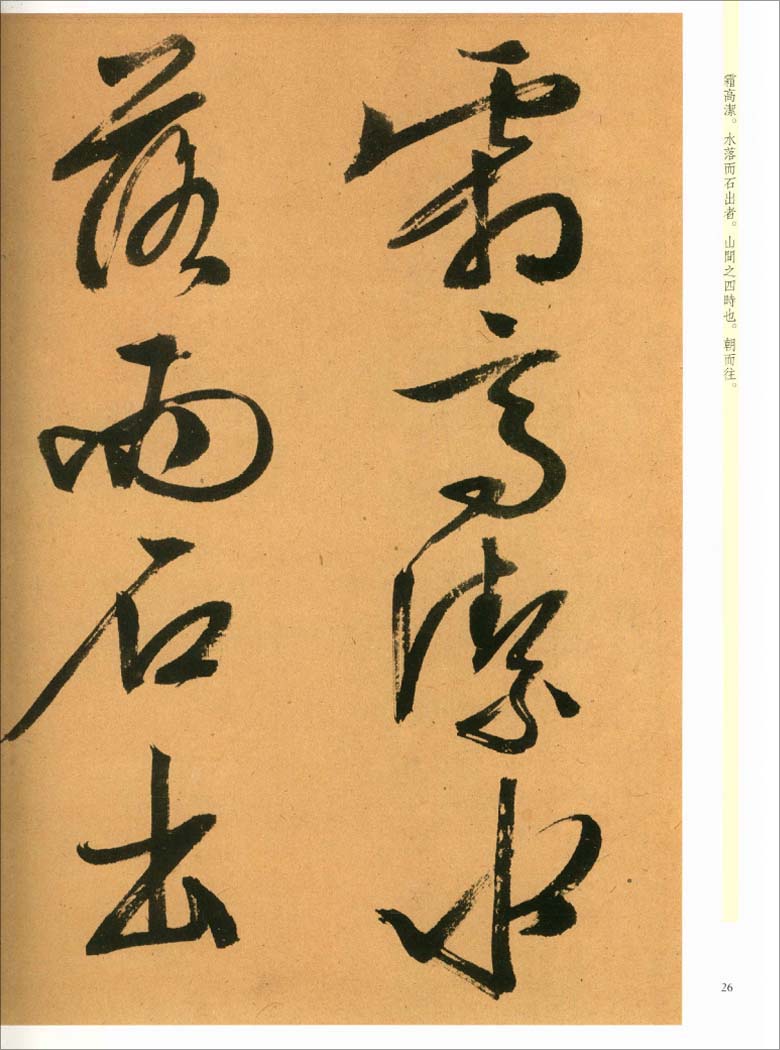 霜高潔。水落而石出者。山間之四時也。朝而往。
霜高潔水
落而石出
26